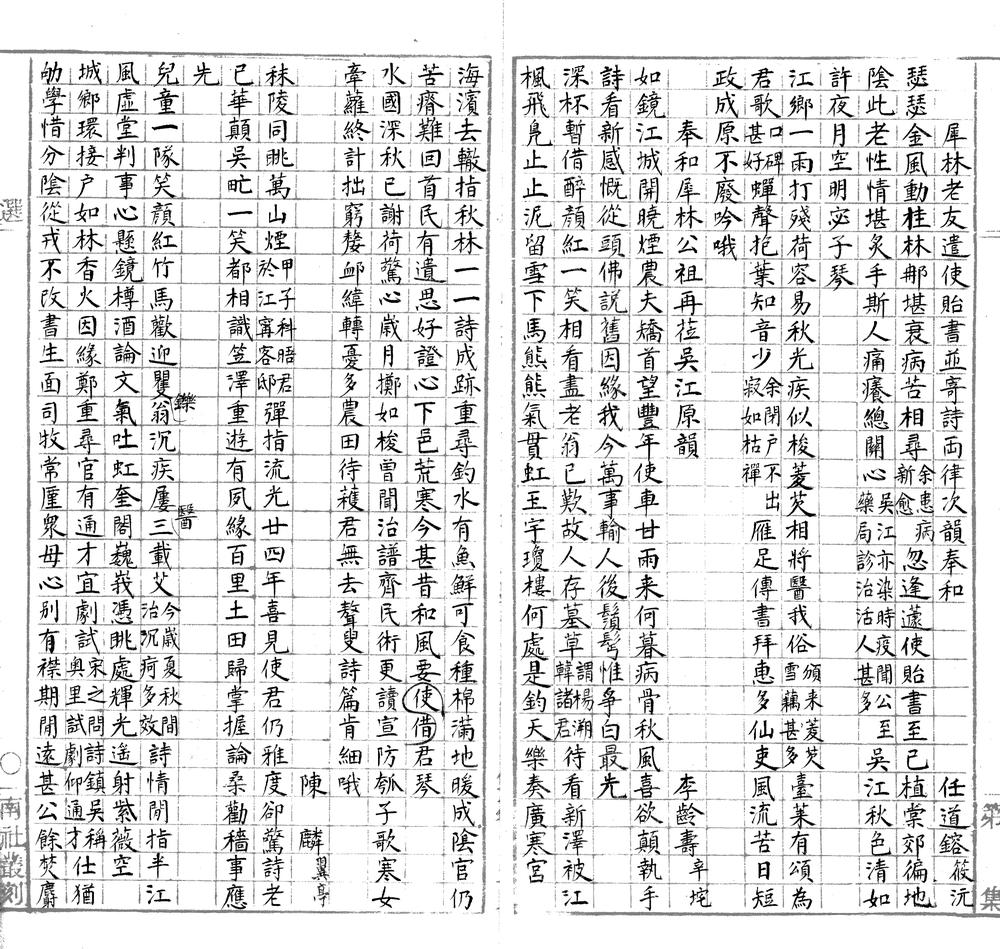 犀林老友遣使貽書並寄詩两律次韻奉和　任道鎔筱沅
瑟瑟金風動桂林那堪衰病苦相尋余患病新愈忽逢蘧使貽書至已植棠郊徧地
陰此老性情堪炙手斯人痛癢總關心吳江亦染時疫聞公至藥局診治活人甚多吳江秋色清如
許夜月空明宓子琴
江鄉一雨打殘荷容易秋光疾似梭菱芡相將醫我俗頒来菱芡雪藕甚多臺莱有頌為
君歌口碑甚好蟬聲抱葉知音少余閉户不出寂如枯禪雁足傳書拜惠多仙吏風流苦日短
政成原不廢吟哦
奉和犀林公祖再蒞吳江原韻　李齡壽辛垞
如鏡江城開曉煙農夫矯首望豐年使車甘雨来何暮病骨秋風喜欲顛執手
詩看新感慨從頭佛說舊因緣我今萬事輸人後鬚髩惟爭白最先
深杯暫借醉顏紅一笑相看盡老翁已歎故人存墓草謂楊溯韓諸君待看新澤被江
楓飛鳧止止泥留雪下馬熊熊氣貫虹玉宇瓊樓何處是鈞天樂奏廣寒宮
第　集
海濱去轍指秋林一一詩成跡重尋釣水有魚鮮可食種棉滿地暖成陰官仍
苦瘠難回首民有遺思好證心下邑荒寒今甚昔和風要使借君琴
水國深秋已謝荷驚心嵗月擲如梭曾聞治譜齊民術更讀宣防瓠子歌寒女
牽蘿終計拙窮嫠卹緯轉憂多農田待穫君無去聱叟詩篇肯細哦
陳麟翼亭
秣陵同眺萬山煙甲子科晤君於江寗客邸彈指流光廿四年喜見使君仍雅度卻驚詩老
已華顛吳㫝一笑都相識笠澤重遊有夙緣百里土田歸掌握論桑勸穡事應
先
兒童一隊笑顏紅竹馬歡迎矍鑠翁沉疾屢醫三載艾今嵗夏秋間治沉疴多效詩情閒指半江
風虛堂判事心懸鏡樽酒論文氣吐虹奎閣巍峩憑眺處輝光遥射紫薇空
城鄉環接户如林香火因緣鄭重尋官有通才宜劇試宋之問詩鎮吳稱奥里試劇仰通才仕猶
劬學惜分陰從戎不改書生面司牧常厪衆母心别有襟期閒遠甚公餘焚麝
選
南社叢刻